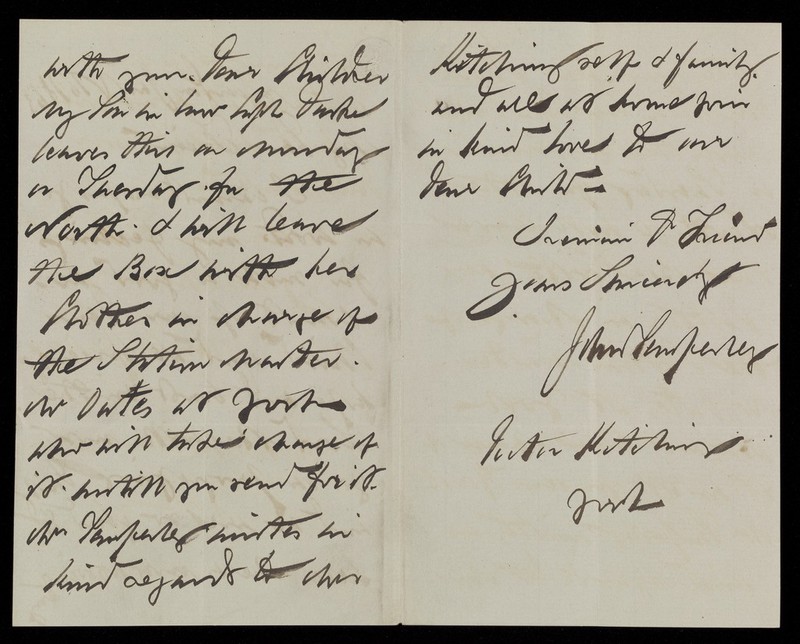 with you. Dear Children
my Son in law Capt Darke
leaves this on Monday
or Tuesday for the
North. & will leave
the Box with her
Clothes in charge of
the Station Master.
Mr Oates at York
who will take charge of
it. untill you send for it.
Mrs Temperley unites in
kind regards to Mrs
Kitching self & family.
and all at home join
in kind love to our
Dear Child =
I remain D Friend
yours Sincerely
John Temperley
Doctor Kitching
York